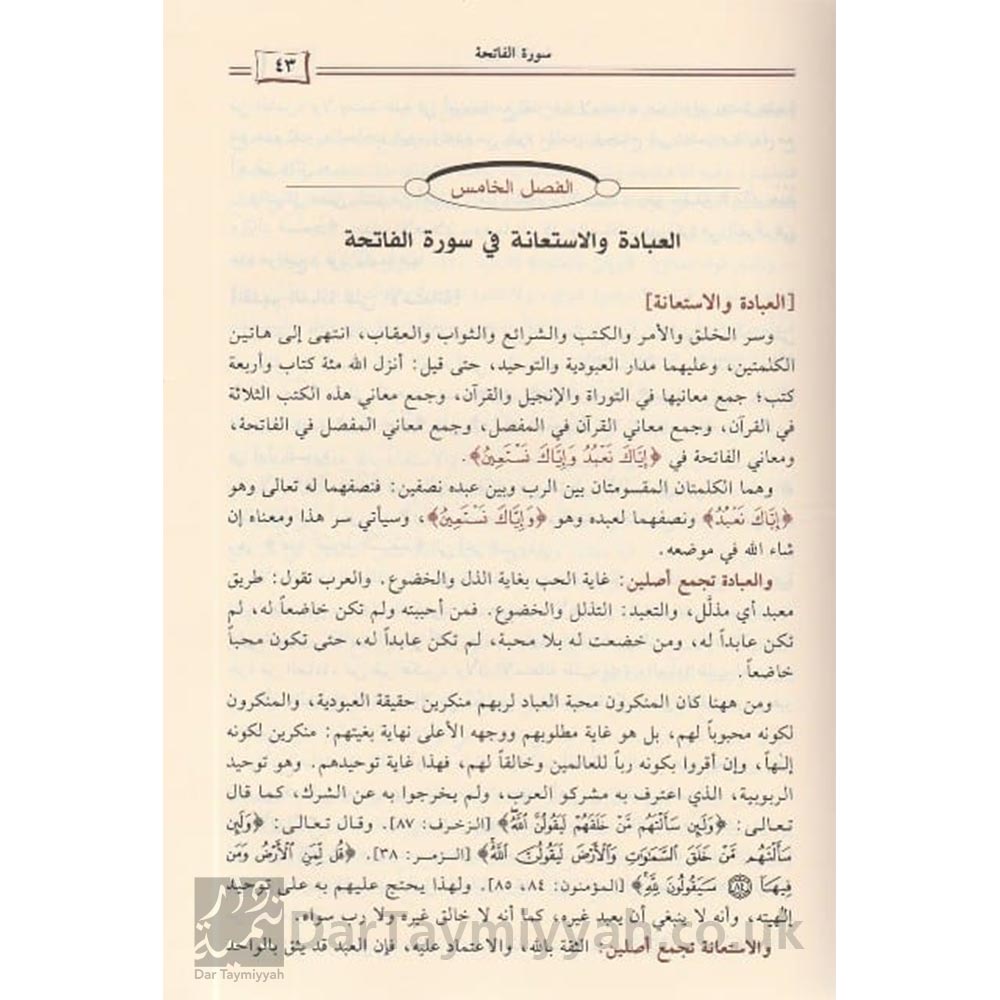 سورة الفاتحة
٤٣
الفصل الخامس
العبادة والاستعانة في سورة الفاتحة
[العبادة والاستعانة]
وسر الخلق والأمر والكتب والشرائع والثواب والعقاب، انتهى إلى هاتين
الكلمتين، وعليهما مدار العبودية والتوحيد، حتى قيل: أنزل الله مئة كتاب وأربعة
كتب؛ جمع معانيها في التوراة والإنجيل والقرآن، وجمع معاني هذه الكتب الثلاثة
في القرآن، وجمع معاني القرآن في المفصل، وجمع معاني المفصل في الفاتحة،
ومعاني الفاتحة في ﴿إِيَّاكَ نَعْبُدُ وَإِيَّاكَ نَسْتَعِينُ﴾.
وهما الكلمتان المقسومتان بين الرب وبين عبده نصفين: فنصفهما له تعالى وهو
﴿إِيَّاكَ نَعْبُدُ﴾ ونصفهما لعبده وهو ﴿وَإِيَّاكَ نَسْتَعِينُ﴾، وسيأتي سر هذا ومعناه إن
شاء الله في موضعه.
والعبادة تجمع أصلين: غاية الحب بغاية الذل والخضوع. والعرب تقول: طريق
معبد أي مذلَّل، والتعبد: التذلل والخضوع. فمن أحببته ولم تكن خاضعاً له، لم
تكن عابداً له، ومن خضعت له بلا محبة، لم تكن عابداً له، حتى تكون محباً
خاضعاً.
ومن ههنا كان المنكرون محبة العباد لربهم منكرين حقيقة العبودية، والمنكرون
لكونه محبوباً لهم، بل هو غاية مطلوبهم ووجهه الأعلى نهاية بغيتهم: منكرين لكونه
إلـٰهاً، وإن أقروا بكونه رباً للعالمين وخالقاً لهم، فهذا غاية توحيدهم. وهو توحيد
الربوبية، الذي اعترف به مشركو العرب، ولم يخرجوا به عن الشرك، كما قال
تـعـالـى: ﴿وَلَئِن سَأَلْتَهُم مَّنْ خَلَقَهُمْ لَيَقُولُنَّ ٱللَّهُ﴾ [الزخرف: ٨٧]. وقال تـعـالـى: ﴿وَلَئِن
سَأَلْتَهُم مَّنْ خَلَقَ ٱلسَّمَٰوَٰتِ وَٱلْأَرْضَ لَيَقُولُنَّ ٱللَّهُ﴾ [الـزمـر: ٣٨]. ﴿قُل لِّمَنِ ٱلْأَرْضُ وَمَن
فِيهَآ ۝٨٤ سَيَقُولُونَ لِلَّهِ﴾ [المؤمنون: ٨٤، ٨٥]. ولهذا يحتج عليهم به على توحيد
إلٰهيته، وأنه لا ينبغي أن يعبد غيره، كما أنه لا خالق غيره ولا رب سواه.
والاستعانة تجمع أصلين: الثقة بالله، والاعتماد عليه، فإن العبد قد يثق بالواحد
Dar Taymiyyah
DarTaymiyyah.co.uk